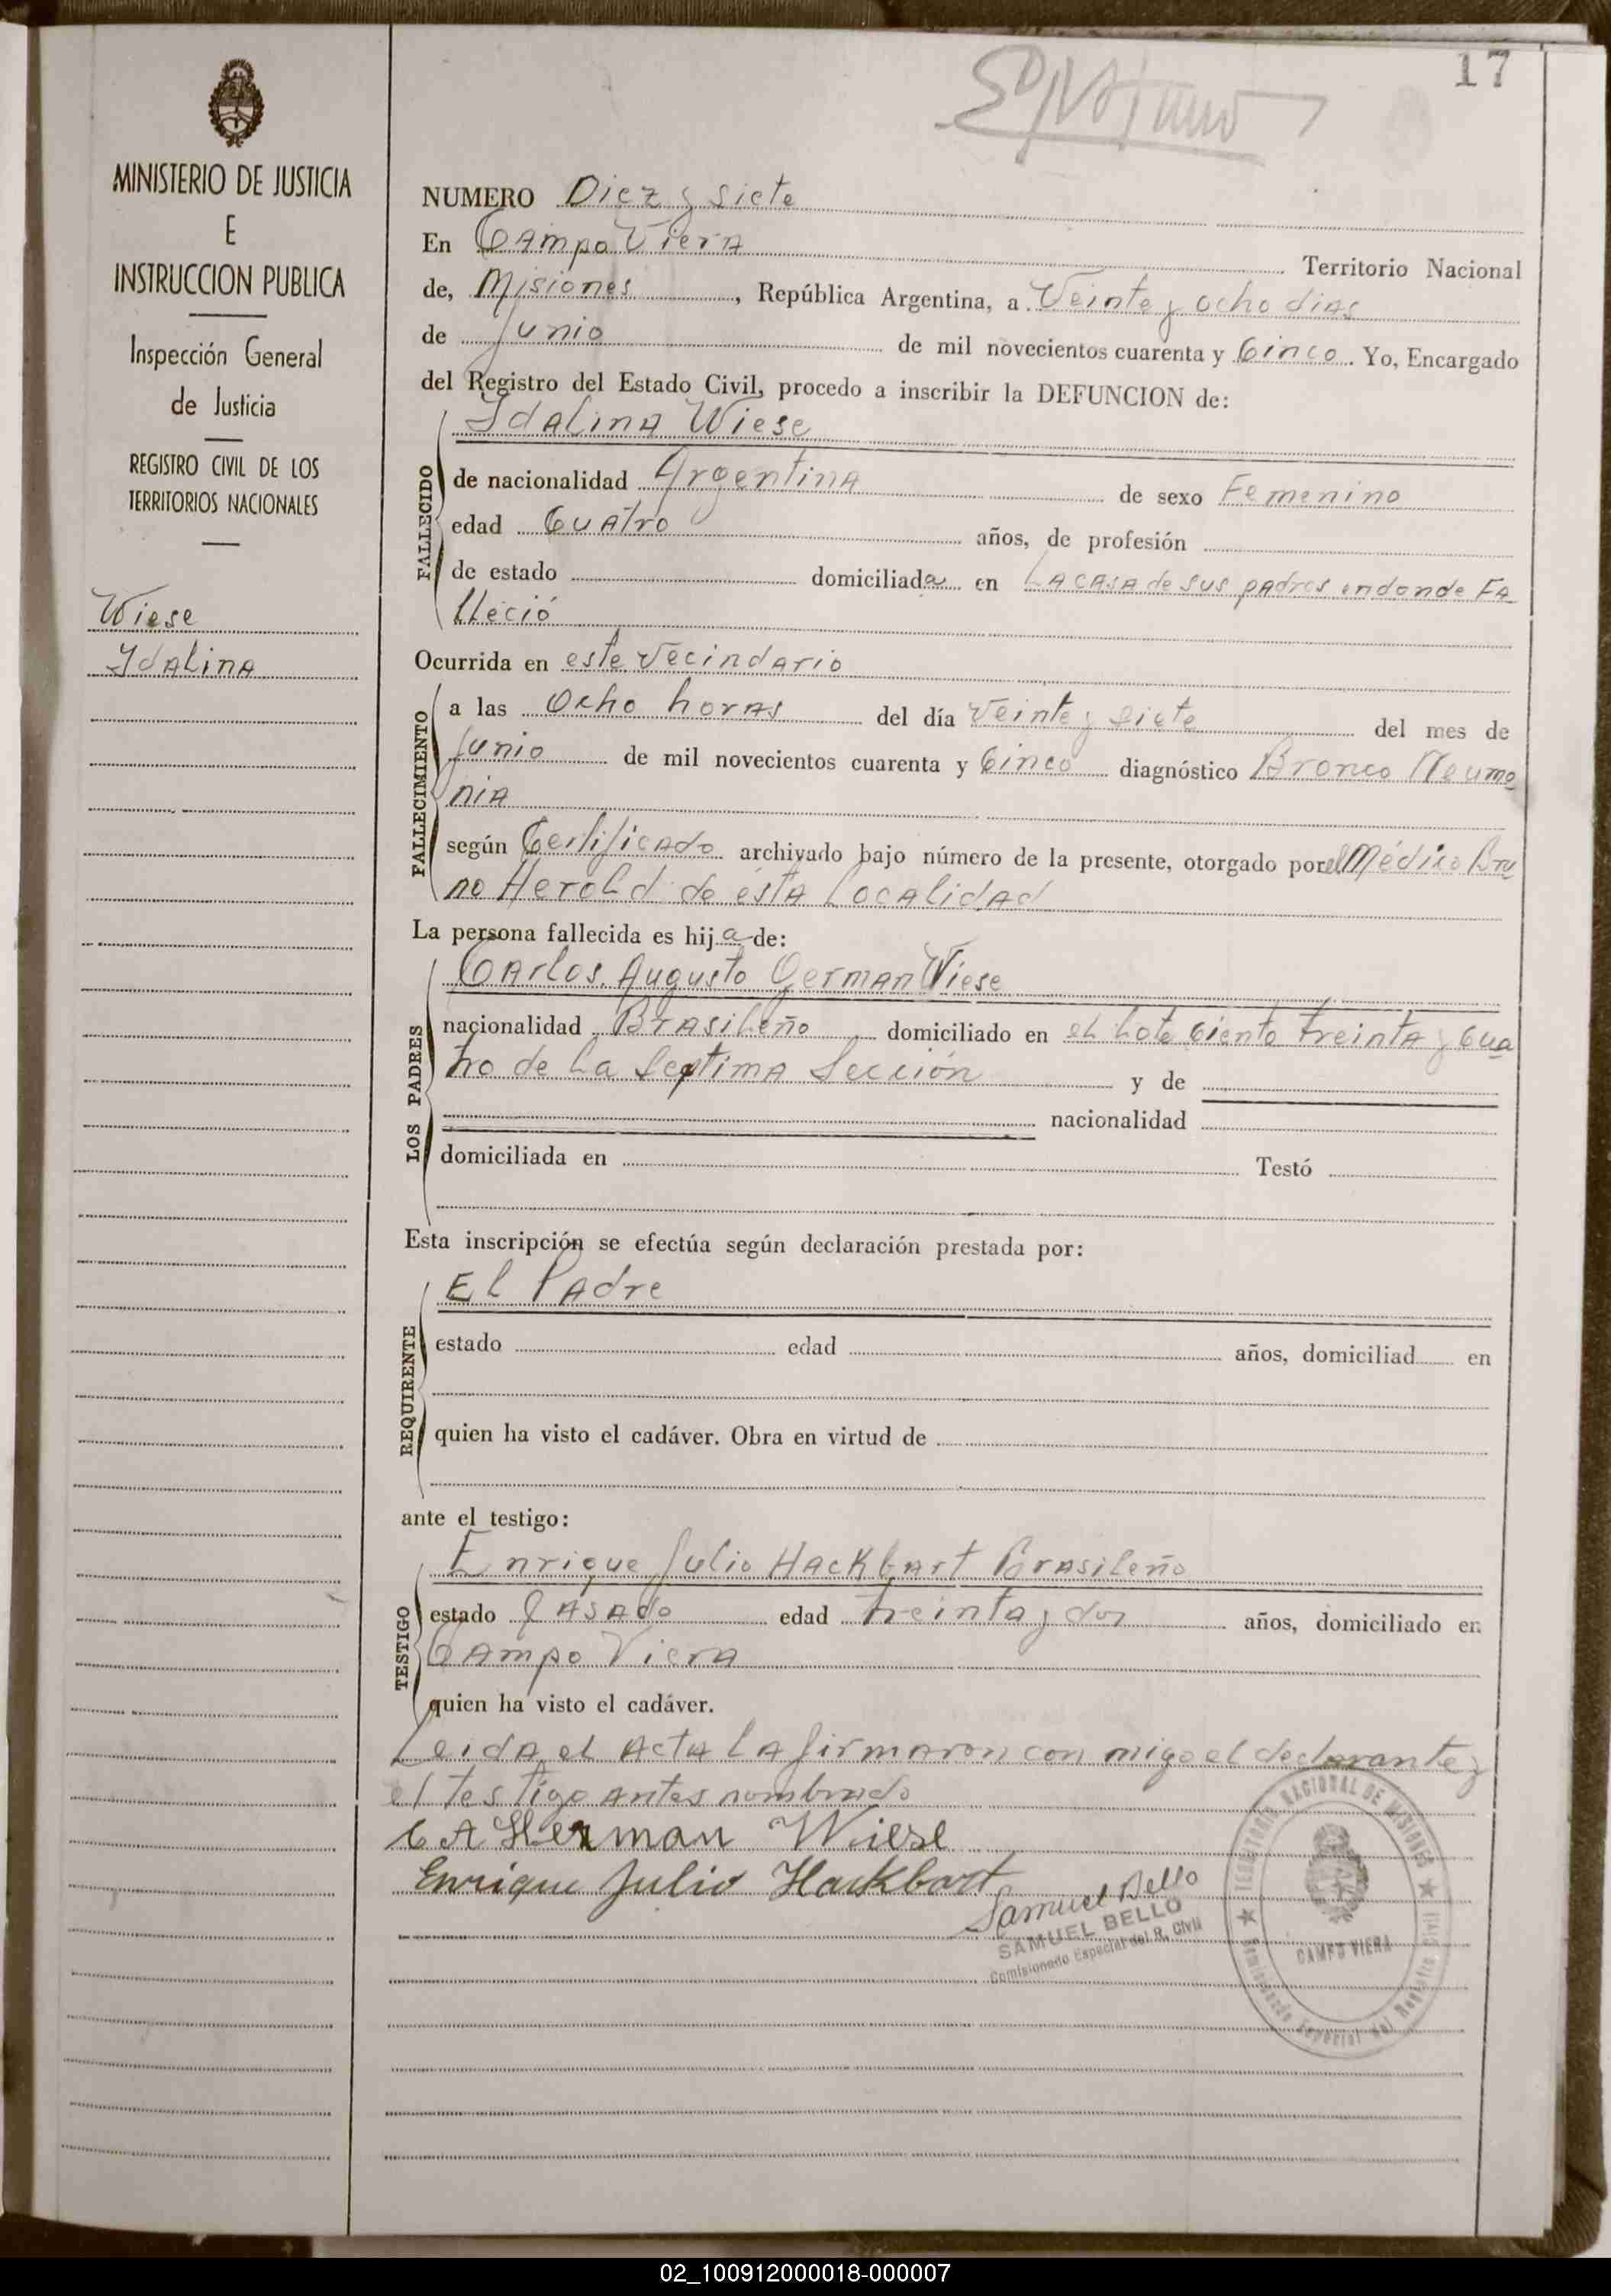 17
MINISTERIO DE JUSTICIA
E
INSTRUCCION PUBLICA
Inspección General
de Justicia
REGISTRO CIVIL DE LOS
TERRITORIOS NACIONALES
Wiese
Idalina
NUMERO Diez y siete
En Campo Viera Territorio Nacional
de, Misiones, República Argentina, a Veinte y ocho dias
de Junio de mil novecientos cuarenta y Cinco. Yo, Encargado
del Registro del Estado Civil, procedo a inscribir la DEFUNCION de:
Idalina Wiese
FALLECIDO
de nacionalidad Argentina de sexo Femenino
edad Cuatro años, de profesión
de estado domiciliada en La casa de sus padres endonde Fa
lleció
Ocurrida en este Vecindario
FALLECIMIENTO
a las Ocho horas del día Veinte y siete del mes de
Junio de mil novecientos cuarenta y Cinco diagnóstico Bronco Neumo
nia
según Certificado archivado bajo número de la presente, otorgado por el Médico Bru
no Herold de ésta Localidad
La persona fallecida es hija de:
LOS PADRES
Carlos Augusto German Wiese
nacionalidad Brasileño domiciliado en el Lote ciento treinta y cua
tro de la Septima Sección y de
nacionalidad
domiciliada en Testó
Esta inscripción se efectúa según declaración prestada por:
REQUIRENTE
El Padre
estado edad años, domiciliad en
quien ha visto el cadáver. Obra en virtud de
ante el testigo:
TESTIGO
Enrique Julio Hackbart Brasileño
estado Casado edad treinta y dos años, domiciliado en
Campo Viera
quien ha visto el cadáver.
Leida el acta la firmaron con migo el declarante y
el testigo antes nombrado
C A Herman Wiese
Enrique Julio Hackbart
Samuel Bello
SAMUEL BELLO
Comisionado Especial del R. Civil
TERRITORIO NACIONAL DE MISIONES
CAMPO VIERA
Comisionado Especial del Registro Civil
02_100912000018-000007